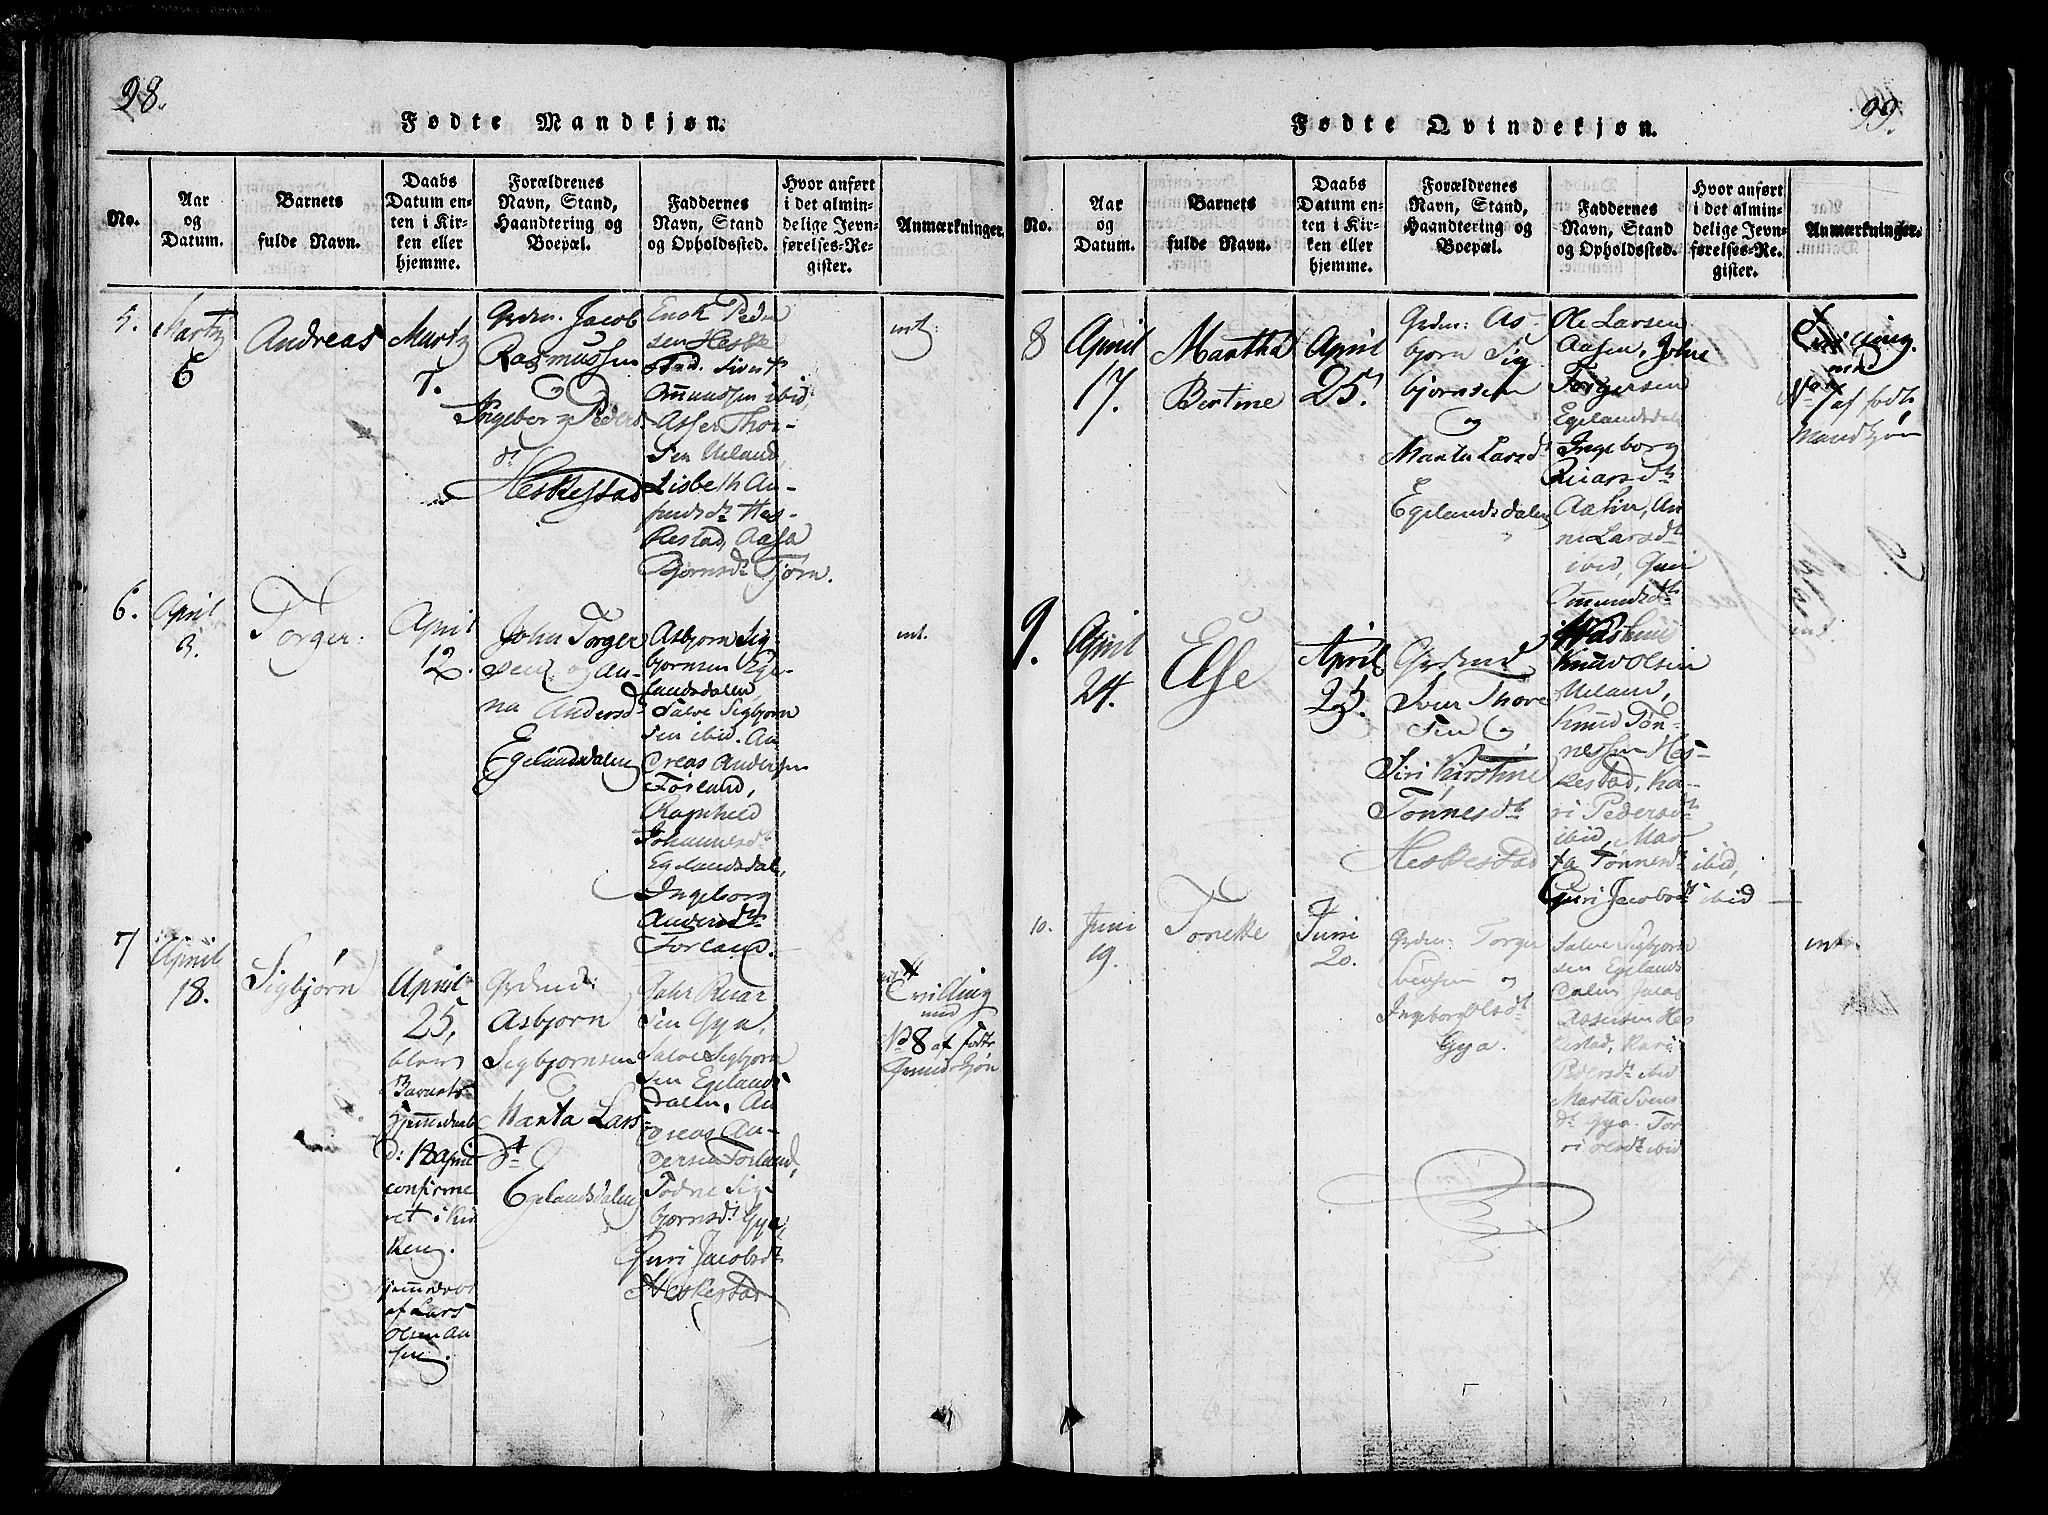 98.
Fødte Mandkjøn.
No.
Aar
og
Datum.
Barnets
fulde Navn.
Daabs
Datum en-
ten i Kir-
ken eller
hjemme.
Forældrenes
Navn, Stand,
Haandtering og
Boepæl.
Faddernes
Navn, Stand
og Opholdssted.
Hvor anført
i det almin-
delige Jevn-
førelses-Re-
gister.
Anmærkninger.
5.
Martz
6
Andreas
Martz
7.
Grdm. Jacob
Rasmussen
og
Ingeborg Peders
dt
Heskestad
Enok Peder
sen Heske
stad. Sivert
Omundsen ibid,
Asser Thor-
sen Ueland,
Lisbeth An-
funds dt Hes-
kestad, Aasa
Bjørnsdt Tjørn.
int:
6.
April
3.
Torger:
April
12.
John Torger
sen og An-
na Andersd
Egelandsdalen
Asbjørn Sig-
bjørnsen Ege-
landsdalen,
Salve Sigbjørn
sen ibid. An
dreas Andersen
Førland,
Ragnhild
Johannesdt
Egelandsdal,
Ingeborg
Andersdt
Førland.
int.
7
April
18.
Sigbjørn
April
25,
blev
Barnet
hjemmedøbt
d: 18 April
confirme
ret i Kir
ken.
hjemmedøbt
af Lars
Olsen Aa
sen.
Grdmd:
Asbjørn
Sigbjørnsen
og
Marta Lars
dt
Egelandsdalen
Johr Reiar
sen Gya,
Salve Sigbjørn
sen Egelands
dalen, An
dreas An-
dersen Førland,
Todne Sig-
bjørnsdt Gya,
Guri Jacobsdt
Heskestad
Tvilling
med
No 8 af Fødte
Qvindekjøn
99.
Fødte Qvindekjøn.
No.
Aar
og
Datum.
Barnets
fulde Navn.
Daabs
Datum en-
ten i Kir-
ken eller
hjemme.
Forældrenes
Navn, Stand,
Haandtering og
Boepæl.
Faddernes
Navn, Stand
og Opholdssted.
Hvor anført
i det almin-
delige Jevn-
førelses-Re-
gister.
Anmærkninger.
8
April
17.
Martha
Bertine
April
25.
Grdm: As-
bjørn Sig
bjørnsen
og
Marta Larsdt
Egelandsdalen
Ole Larsen
Aasen, John
Torgersen
Egelandsdalen
Ingeborg
Reiarsdt
Aasen, An
ne Larsdt
ibid, Guri
Omundsdt
Tvilling
med
No 7 af fødte
Mandkjøn
9.
April
24.
Else
April
25.
Grdmd
Sven Thore
sen og
Siri Kirstine
Tønnesdt
Heskestad
Knud Olsen
Ueland,
Knud Tøn-
nessen Hes-
kestad, Ka-
ri Pedersdt
ibid, Mar
ta Tønnesdt ibid,
Guri Jacobsdt ibid
10.
Juni
19.
Tonette
Juni
20.
Grdm: Torger
Svensen og
Ingeborg Olsdt
Gya.
Salve Sigbjørn
sen Egelands
dalen Jacob
Assersen Hes
kestad, Kari
Pedersdt ibid
Marta Svens
dt Gya. Tor
ri Olsdt ibid
int.